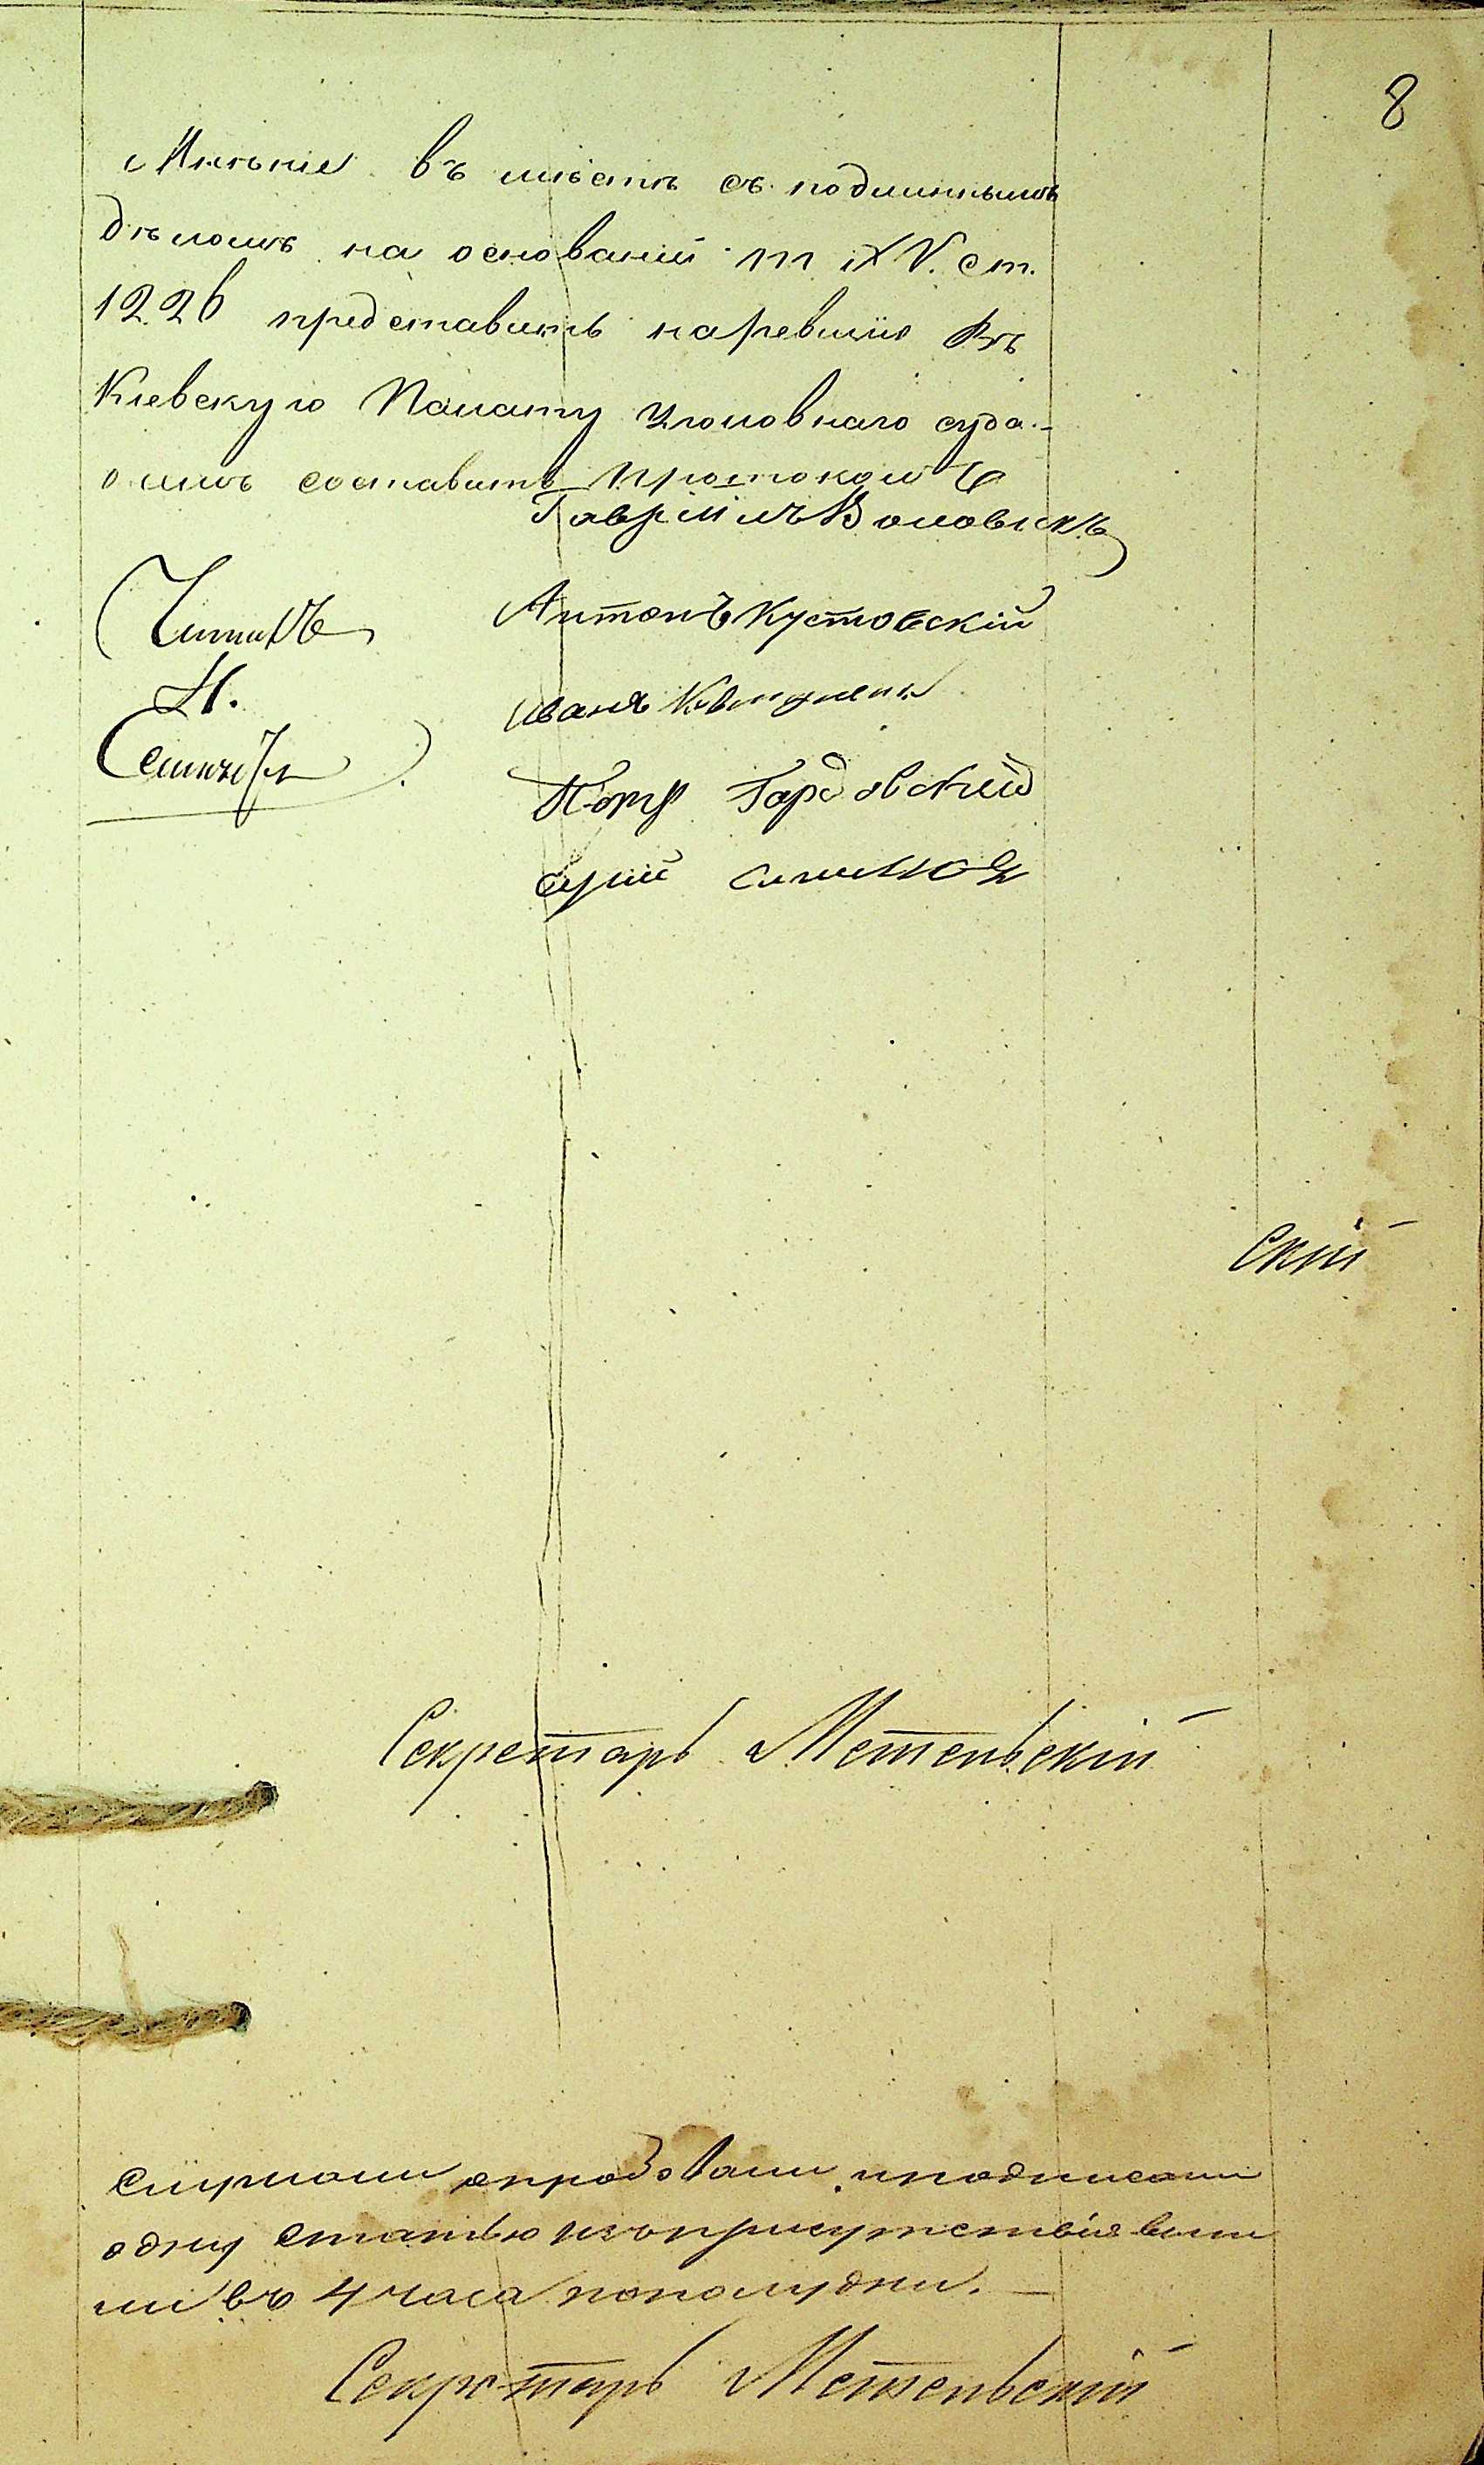 8
Мнѣніе въ мѣстѣ съ подлиннымъ
дѣломъ на основаніи т XV. ст.
1226 представить на ревизію въ
Кіевскую Палату Уголовнаго суда.-
о чемъ составить протоколъ
Гавріилъ Воловикъ
Читалъ
Антонъ Кустовскій
Н.
Иванъ
Петръ Гардовскій
скій
Секретарь Метельскій
слушали апробовали и подписали
одну статью изъ присутствія вышли
въ 4 часа пополудни. —
Секретарь Метельскій